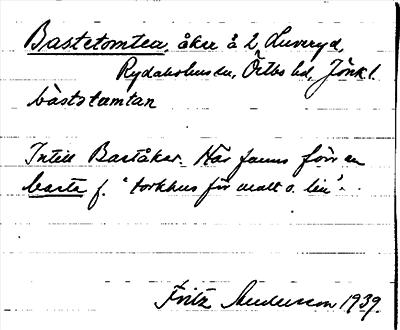 Bastetomten, åker å 2 Luveryd,
Rydaholms sn, Östbo hd, Jönk l.
bàstətǫmtan
Intill Baståker. Här fanns förr en
basta f. "torkhus för malt o. lin".
Fritz Andersson 1939.